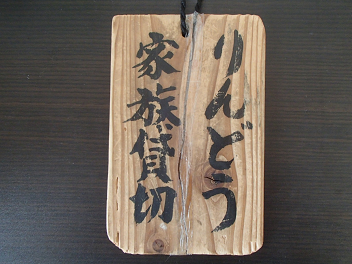 りんどう
家族貸切